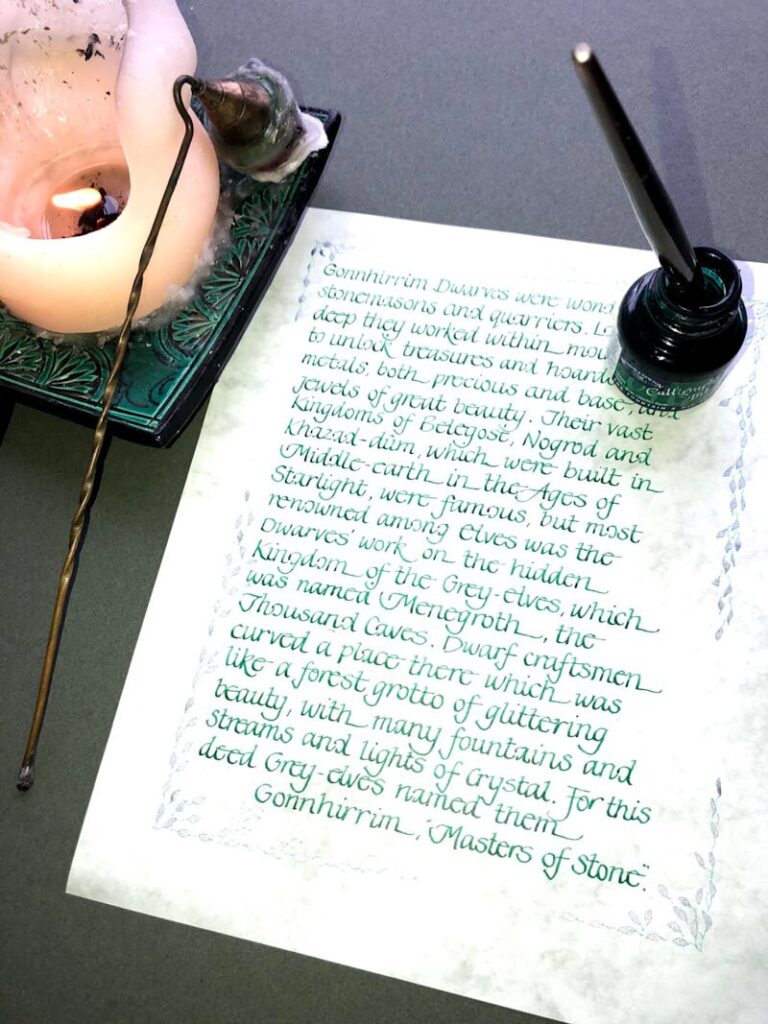 Gonnhirrim Dwarves were
stonemasons and quarriers.
deep they worked within
to unlock treasures and
metals, both precious and base, and
jewels of great beauty. Their vast
Kingdoms of Belegost, Nogrod and
Khazad-dûm, which were built in
Middle-earth in the Ages of
Starlight, were famous, but most
renowned among Elves was the
Dwarves' work on the hidden
Kingdom of the Grey-elves, which
was named Menegroth, the
Thousand Caves. Dwarf craftsmen
curved a place there which was
like a forest grotto of glittering
beauty, with many fountains and
streams and lights of crystal. For this
deed Grey-elves named them
Gonnhirrim, "Masters of Stone".